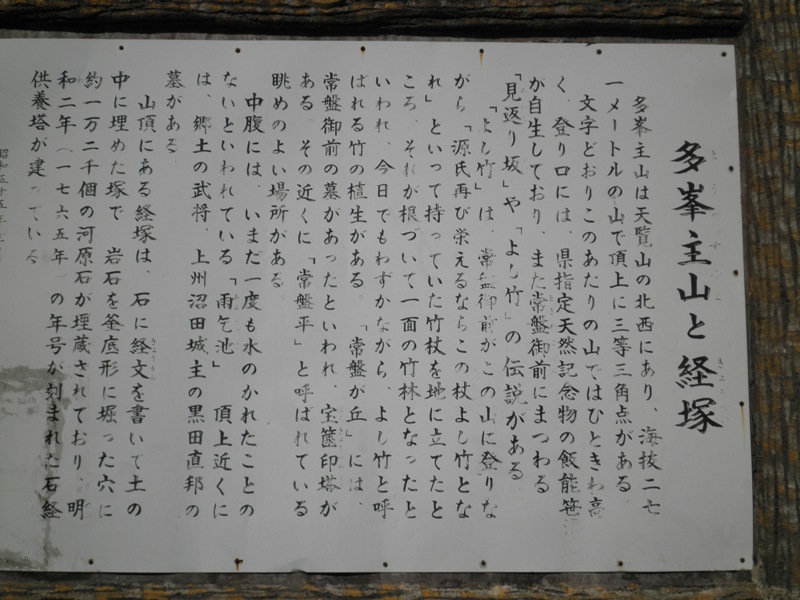 多峯主山と経塚
多峯主山は天覧山の北西にあり、海抜二七
一メートルの山で頂上に三等三角点がある
文字どおりこのあたりの山ではひときわ高
く、登り口には、県指定天然記念物の飯能笹
が自生しており、また常盤御前にまつわる
「見返り坂」や「よし竹」の伝説がある
「よし竹」は、常盤御前がこの山に登りな
がら「源氏再び栄えるならこの杖よし竹とな
れ」といって持っていた竹杖を地に立てたと
ころ、それが根づいて一面の竹林となったと
いわれ、今日でもわずかながら、よし竹と呼
ばれる竹の植生がある。「常盤が丘」には、
常盤御前の墓があったといわれ、宝篋印塔が
ある。その近くに「常盤平」と呼ばれている
眺めのよい場所がある
中腹には、いまだ一度も水のかれたことの
ないといわれている「雨乞池」 頂上近くに
は、郷土の武将、上州沼田城主の黒田直邦の
墓がある
山頂にある経塚は、石に経文を書いて土の
中に埋めた塚で 岩石を釜底形に堀った穴に
約一万二千個の河原石が埋蔵されており、明
和二年(一七六五年 の年号が刻まれた石経
供養塔が建っている
昭和五十五年